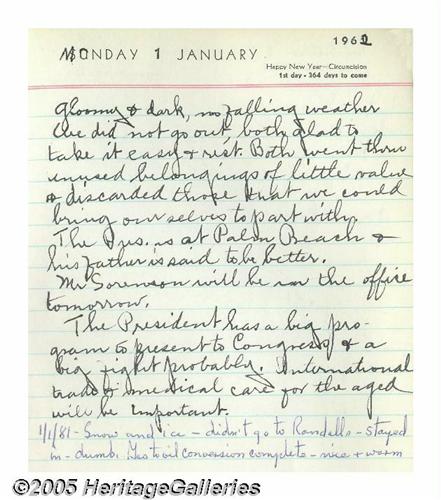 MONDAY 1 JANUARY 1962
Happy New Year—Circumcision
1st day - 364 days to come
gloomy & dark, no falling weather
We did not go out, both glad to
take it easy & rest. Both went thru
unused belongings of little value
& discarded those that we could
bring ourselves to part with.
The Pres. is at Palm Beach &
his father is said to be better.
Mr Sorenson will be in the office
tomorrow.
The President has a big pro-
gram to present to Congress & a
big fight probably. International
trade & medical care for the aged
will be important.
1/1/81 - Snow and ice - didn't go to Randalls - stayed
in - dumb. Gas to oil conversion complete - nice & warm
©2005 HeritageGalleries